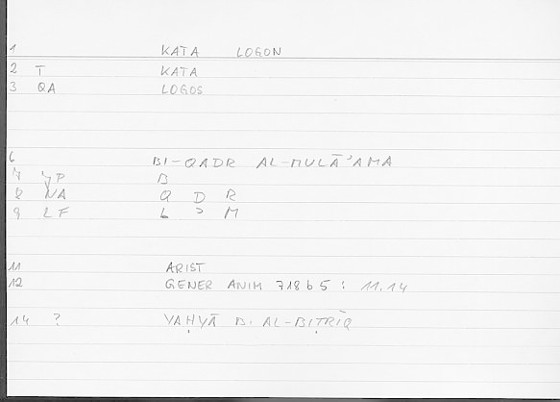 1 KATA LOGON
2 T KATA
3 QA LOGOS
6 BI-QADR AL-MULĀʾAMA
7 P B
8 NA Q D R
9 LF L ʾ M
11 ARIST
12 GENER ANIM 718b5 : 11.14
14 ? YAḤYĀ B. AL-BIṬRĪQ